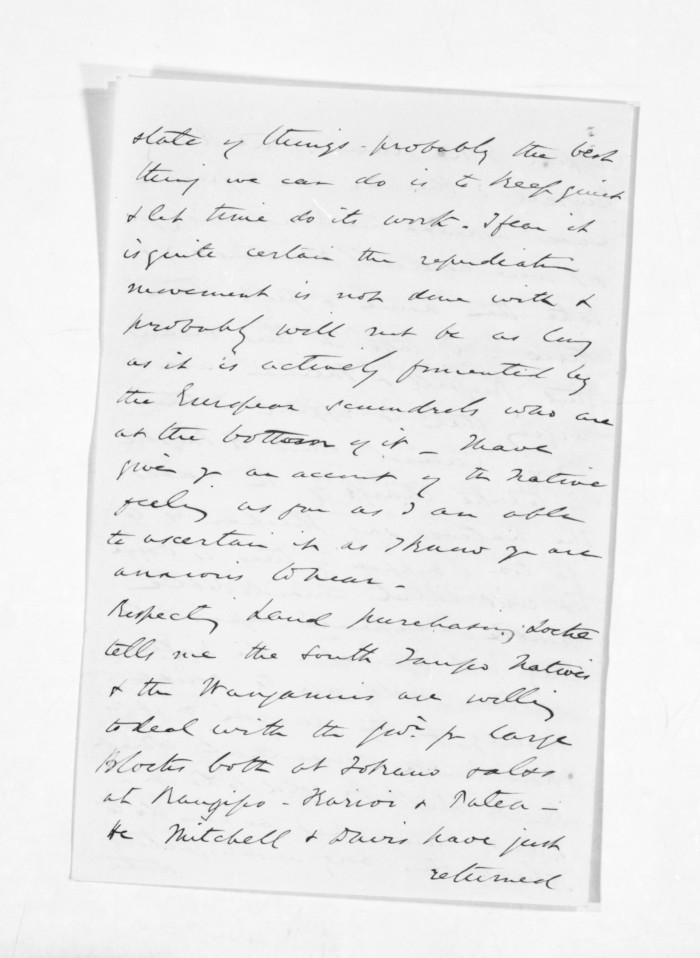 state of things - probably the best
thing we can do is to keep quiet
& let time do its work - I fear it
is quite certain the repudiation
movement is not done with &
probably will not be as long
as it is actively fomented by
the European scoundrels who are
at the bottom of it - I have
given you an account of the Native
feeling as far as I am able
to ascertain it as I know you are
anxious to hear -
Respecting Land purchasing, Locke
tells me the South Taupo Natives
& the Wanganuis are willing
to deal with the govt. for large
blocks both at Tokano & also
at Rangipo - Karioi & Patea -
He Mitchell & Davis have just
returned